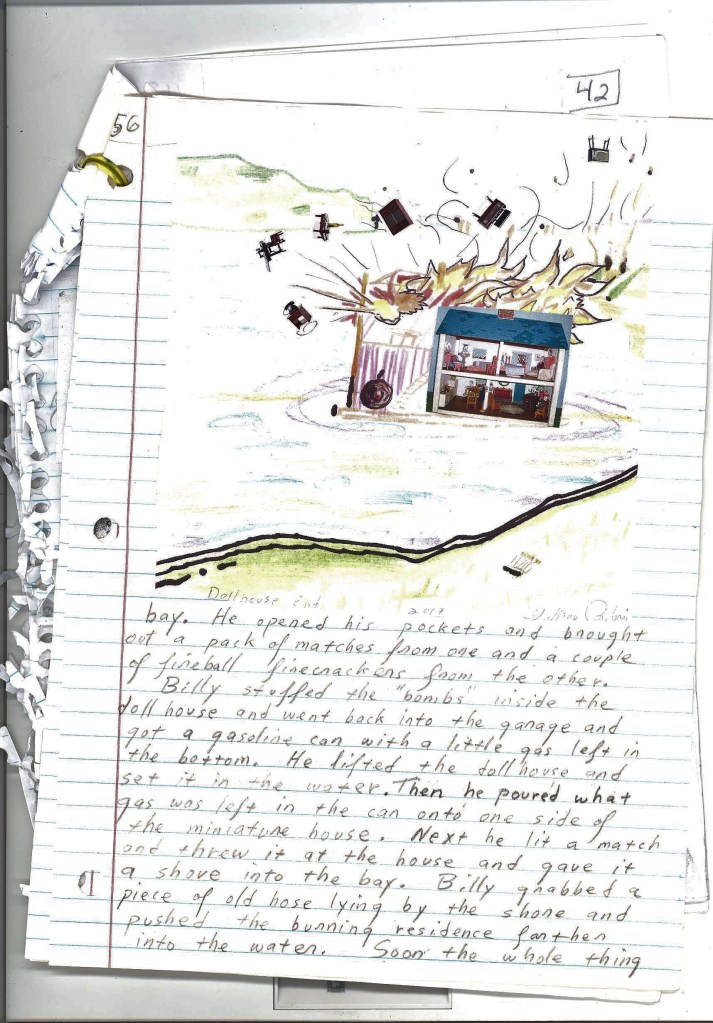 42
56
Dollhouse
2017
bay. He opened his pockets and brought
out a pack of matches from one and a couple
of fireball firecrackers from the other.
Billy stuffed the "bombs" inside the
doll house and went back into the garage and
got a gasoline can with a little gas left in
the bottom. He lifted the dollhouse and
set it in the water. Then he poured what
gas was left in the can onto one side of
the miniature house. Next he lit a match
and threw it at the house and gave it
a shove into the bay. Billy grabbed a
piece of old hose lying by the shore and
pushed the burning residence farther
into the water. Soon the whole thing